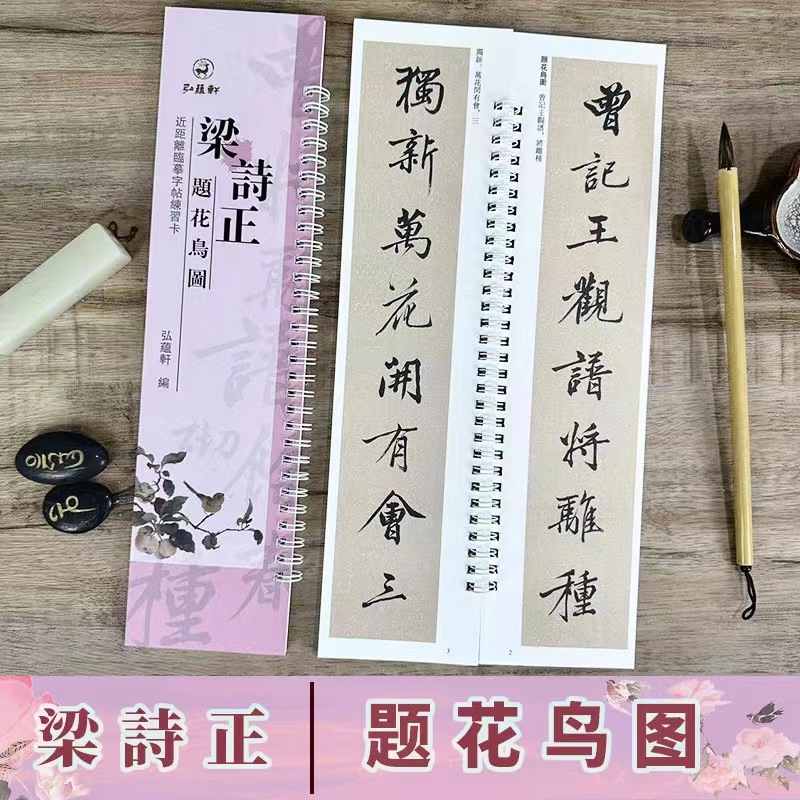 弘蘊軒
梁詩正
題花鳥圖
近距離臨摹字帖練習卡
弘蘊軒 編
题花鸟图 曾記王觀譜，將離種
曾記王觀譜将離種
2
獨新。萬花開有會，三
獨新萬花開有會三
3
梁詩正
题花鸟图